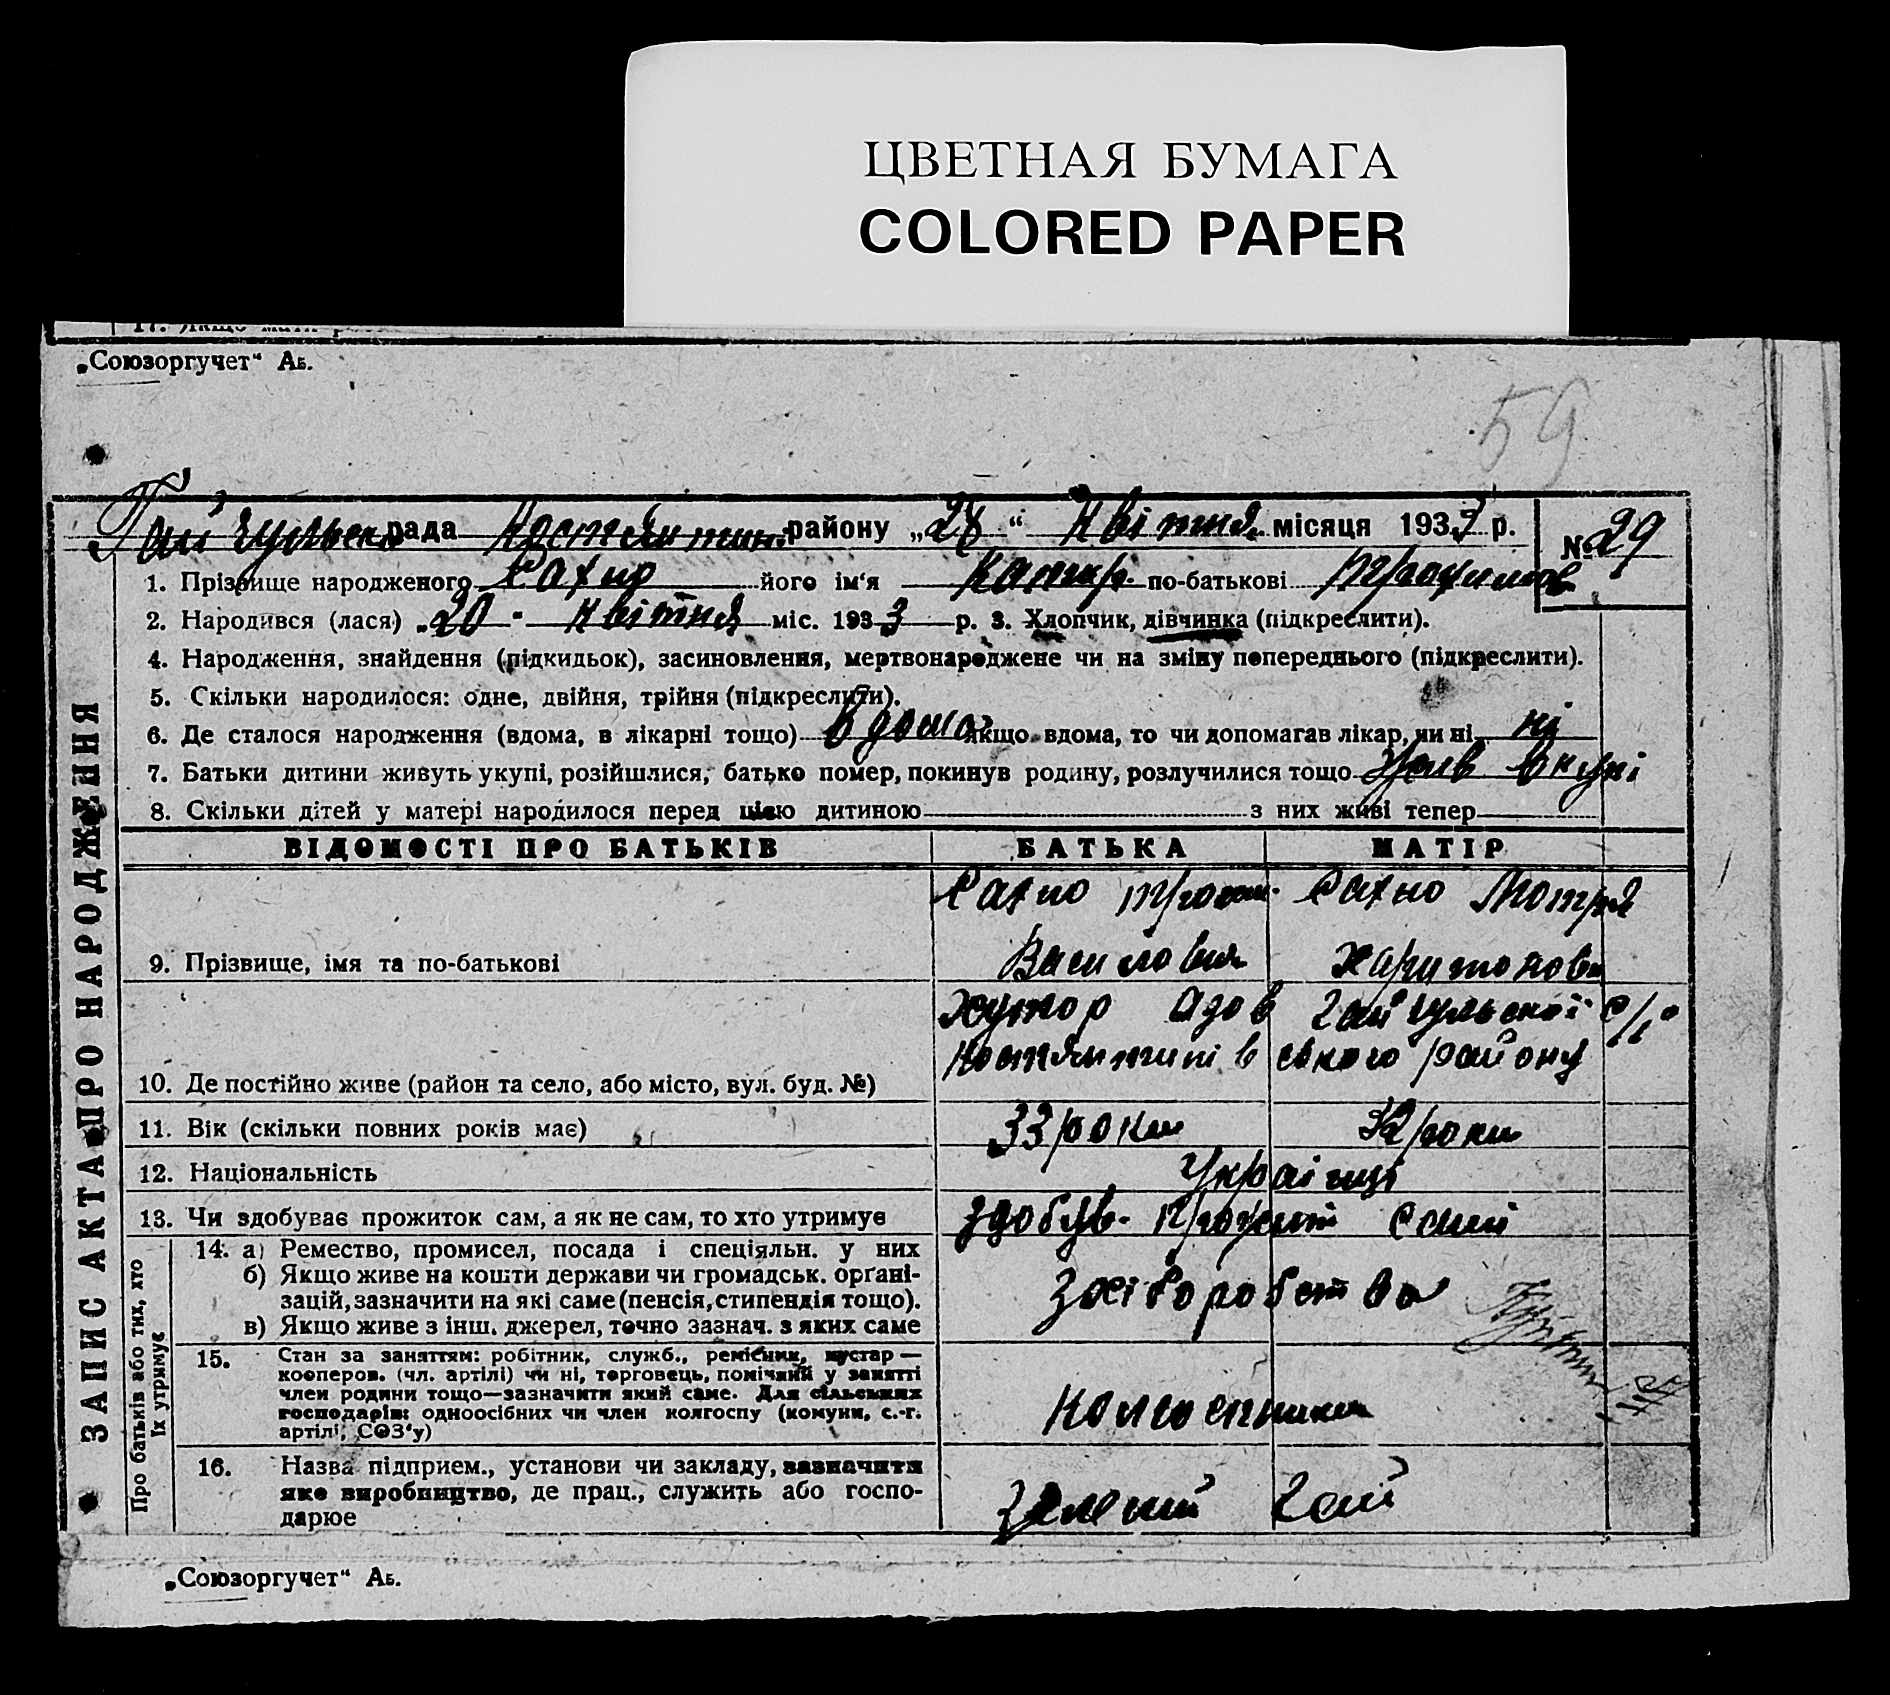 ЦВЕТНАЯ БУМАГА
COLORED PAPER
„Союзоргучет“ Аб.
59
Гайчульська рада Костянтин. району „28“ Квітня місяця 1933 р.
№ 29
1. Прізвище народженого Сахно його ім‘я Катер. по-батькові Трохимов
2. Народився (лася) „20 " квітня міс. 1933 р. 3. Хлопчик, дівчинка (підкреслити).
4. Народження, знайдення (підкидьок), засиновлення, мертвонароджене чи на зміну попереднього (підкреслити).
5. Скільки народилося: одне, двійня, трійня (підкреслити).
6. Де сталося народження (вдома, в лікарні тощо) Вдома якщо вдома, то чи допомагав лікар, чи ні ні
7. Батьки дитини живуть укупі, розійшлися, батько помер, покинув родину, розлучилися тощо вкупі
8. Скільки дітей у матері народилося перед цією дитиною з них живі тепер
ЗАПИС АКТА ПРО НАРОДЖЕННЯ
ВІДОМОСТІ ПРО БАТЬКІВ БАТЬКА МАТІР
Сахно Трохим. Сахно Мотря
9. Прізвище, імя та по-батькові Василович Харитонов
Хутор Адов Гайчульської с/р
Костянтинівського району
10. Де постійно живе (район та село, або місто, вул. буд. №)
11. Вік (скільки повних років має) 33 роки 32 роки
12. Національність Українці
13. Чи здобуває прожиток сам, а як не сам, то хто утримує здобув. прожит самі
Про батьків або тих, хто їх утримує
14. а) Ремество, промисел, посада і спеціяльн. у них
б) Якщо живе на кошти держави чи громадськ. органі-
зацій, зазначити на які саме (пенсія, стипендія тощо).
в) Якщо живе з інш. джерел, точно зазнач. з яких саме
хліборобство
15. Стан за заняттям: робітник, служб., ремісник, кустар —
кооперов. (чл. артілі) чи ні, торговець, помічний у занятті
член родини тощо—зазначити який саме. Для сільських
господарів: одноосібних чи член колгоспу (комуни, с.-г.
артілі, СОЗ‘у)
колгоспники
16. Назва підприєм., установи чи закладу, зазначити
яке виробництво, де прац., служить або госпо-
дарює
Зелений Гай
„Союзоргучет“ Аб.